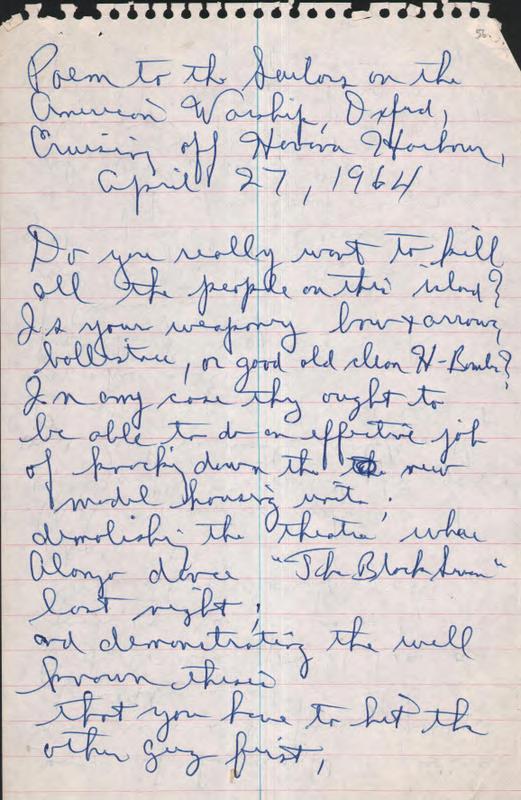 56.
Poem to the Sailors on the
American Warship, Oxford,
Cruising off Havana Harbour,
April 27, 1964
Do you really want to kill
all the people on this island?
Is your weaponry bow + arrow,
ballistae, or good old clean H-Bombs?
In any case they ought to
be able to do an effective job
of knocking down the new
model housing units,
demolishing the theatre where
Alonzo dance "The Black Swan"
last night,
and demonstrating the well
known thesis
that you have to hit the
other guy first,